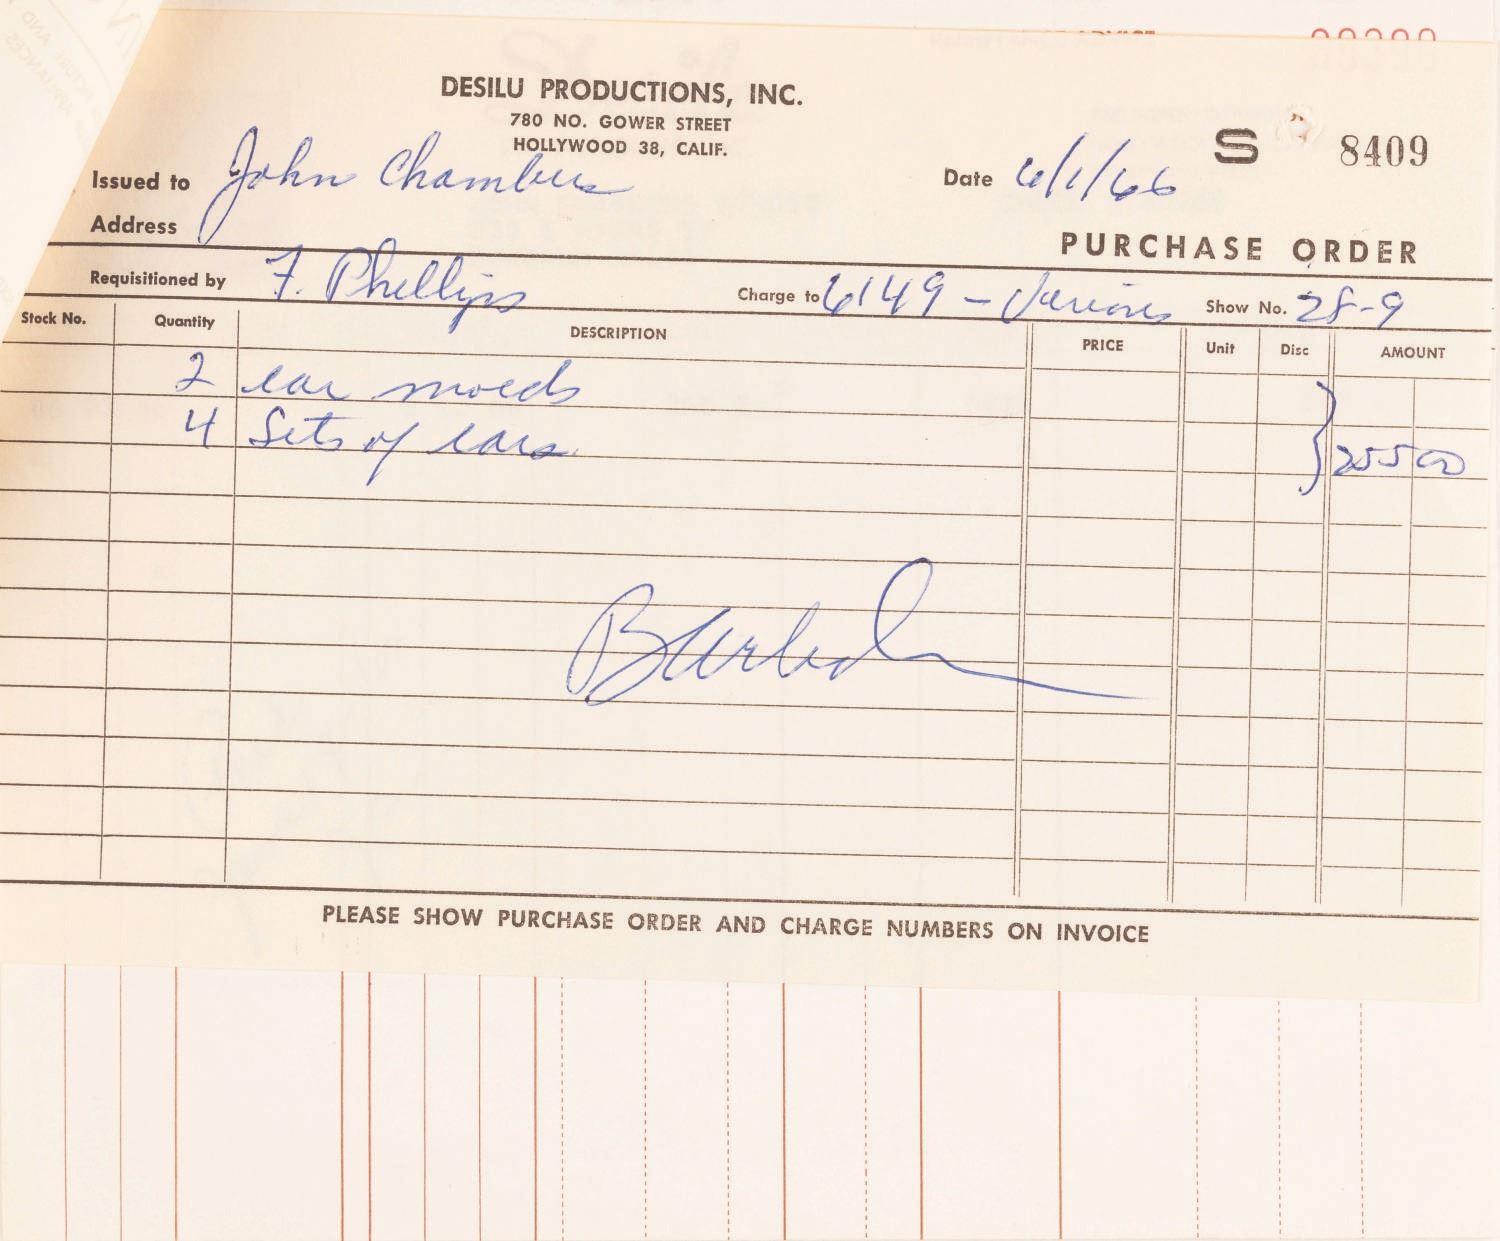 DESILU PRODUCTIONS, INC.
780 NO. GOWER STREET
HOLLYWOOD 38, CALIF.
S 8409
Issued to John Chambers
Date 6/1/66
Address
PURCHASE ORDER
Requisitioned by F. Phillips Charge to 6149 - Various Show No. 28-9
Stock No. Quantity DESCRIPTION PRICE Unit Disc AMOUNT
2 ear molds
4 Sets of ears } 255 00
PLEASE SHOW PURCHASE ORDER AND CHARGE NUMBERS ON INVOICE